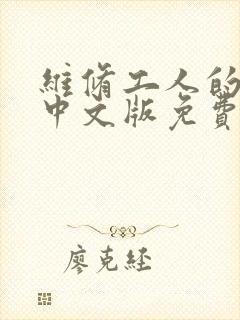 維脩工人的
中文版免費
廖克經